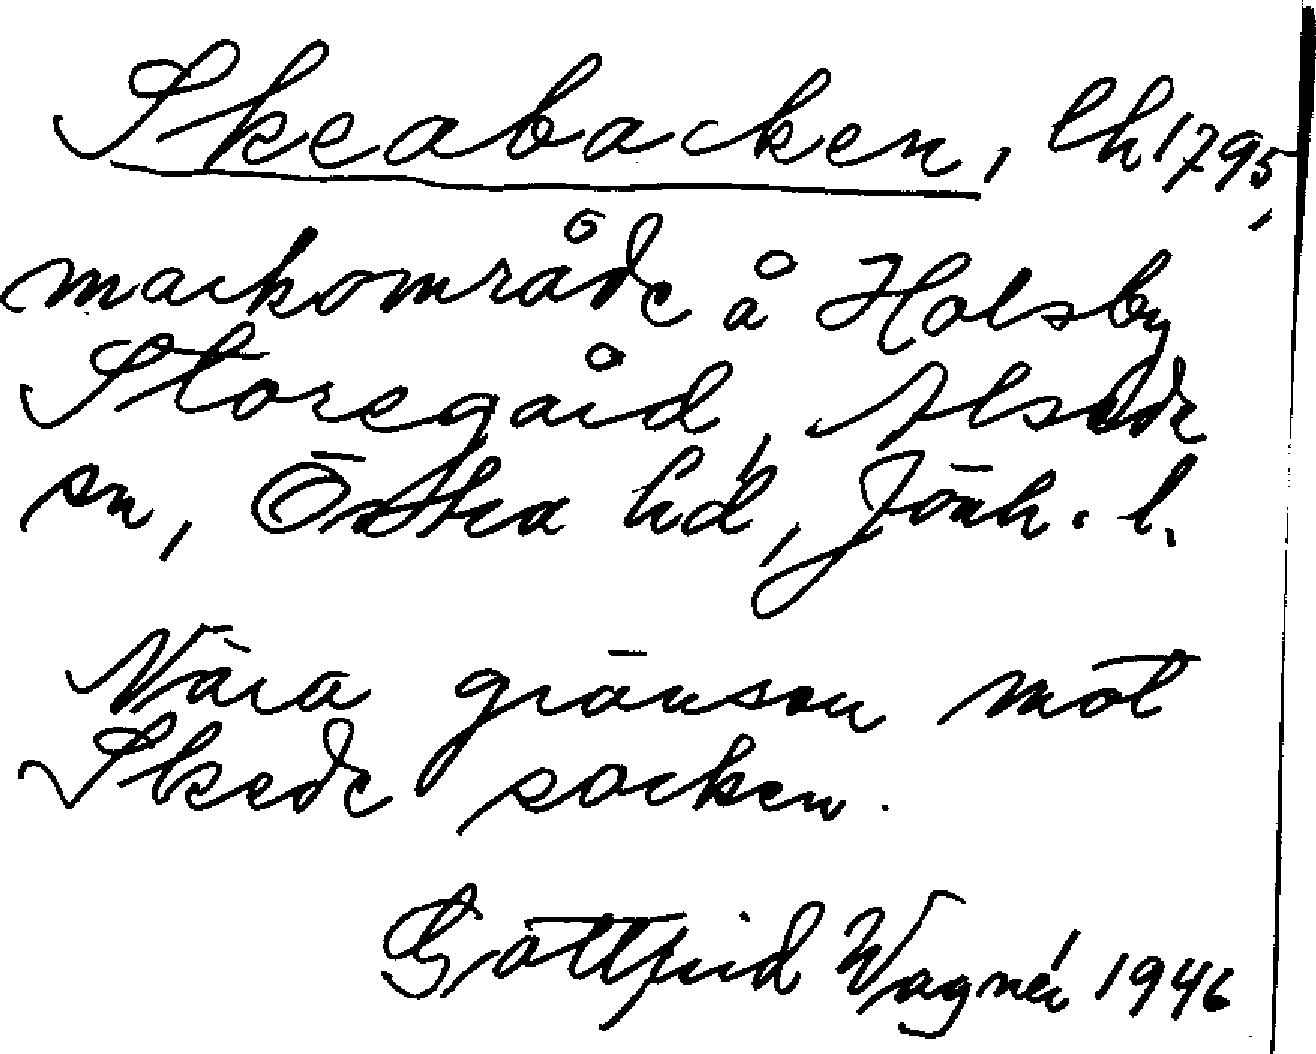 Skeabacken, lh 1795,
markområde å Holsby
Storegård, Alseda
sn, Östra hd, Jönk. l.
Nära gränsen mot
Skede socken.
Gottfrid Wagnér 1946